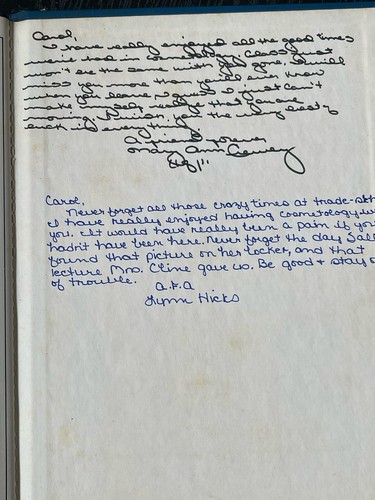 Carol,
I have really enjoyed all the good times
we've had in cosmetology. Class just
won't be the same with you gone. I will
miss you more than you'll ever know
when you leave. I guess I just can't
make myself realize that you are
moving. I wish you the very best of
luck in everything.
A friend forever
Mary Ann
Carol,
Never forget all those crazy times at trade-sch
I have really enjoyed having cosmetology w
you. It would have really been a pain if you
hadn't have been here. Never forget the day Sall
found that picture on her locker, and that
lecture Mrs. Cline gave us. Be good + stay o
of trouble.
a.f.a
Lynn Hicks